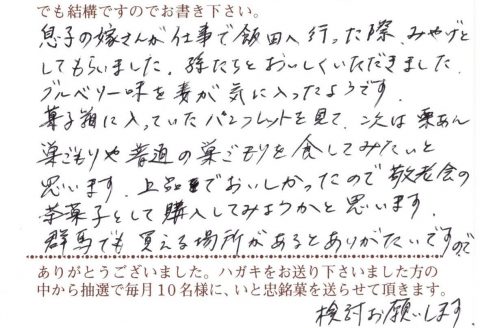 でも結構ですのでお書き下さい。
息子の嫁さんが仕事で飯田へ行った際、みやげと
してもらいました。孫たちとおいしくいただきました。
ブルベリー味を妻が気に入ったようです。
菓子箱に入っていたパンフレットを見て、次は栗あん
巣ごもりや普通の巣ごもりを食してみたいと
思います。上品でおいしかったので敬老会の
茶菓子として購入してみようかと思います。
群馬でも買える場所があるとありがたいですので
ありがとうございました。ハガキをお送り下さいました方の
中から抽選で毎月10名様に、いと忠銘菓を送らせて頂きます。
検討お願いします。